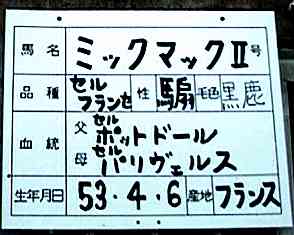 馬名 ミックマックⅡ号
品種 セルフランセ 性 騸 毛色 黒鹿
血統 父 セルポットドール
母 セルパリヴェルス
生年月日 53・4・6 産地 フランス